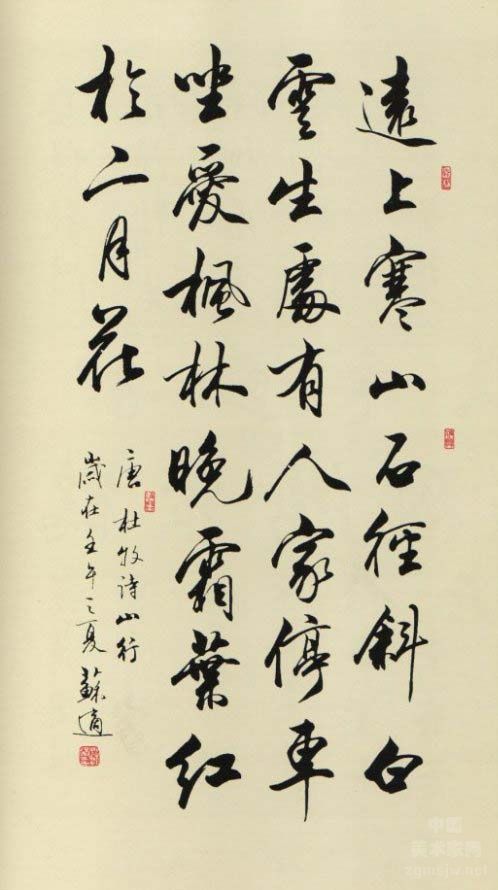 遠上寒山石徑斜白
雲生處有人家停車
坐愛楓林晚霜葉紅
於二月花
唐杜牧诗山行
歲在壬午之夏蘇適
中国
美术家网
zgmsjw.net